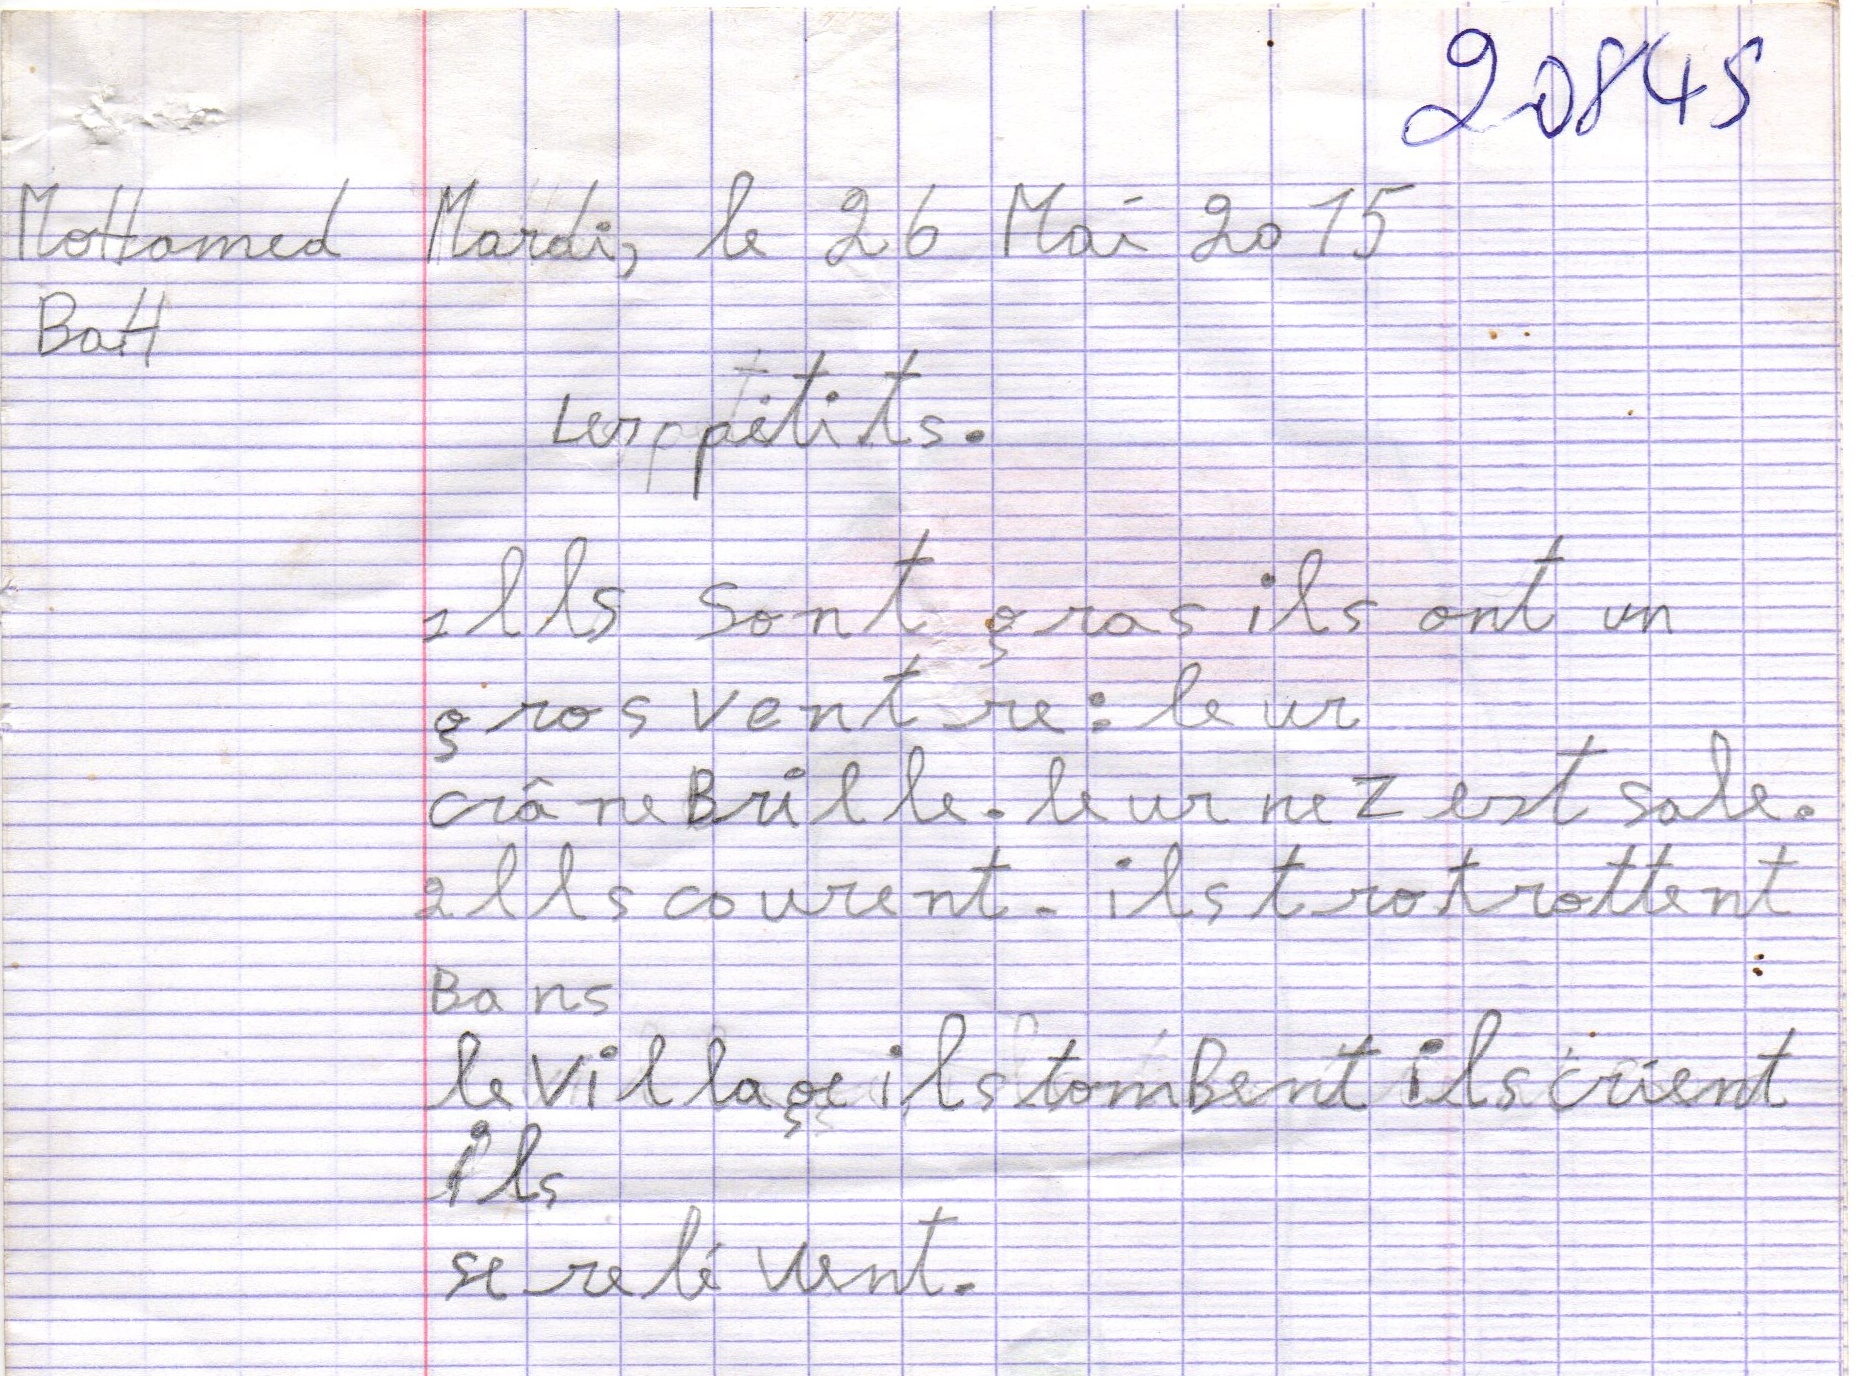 20845
Mohamed Mardi, le 26 Mai 2015
BaH
Les ppétits.
Ills sont gras ils ont un
gros ventre: leur
crâne Brille. leur nez est sale.
Ills courent. ils trotrottent
Bans
le village ils tomBent ils crient
ils
se relévent.